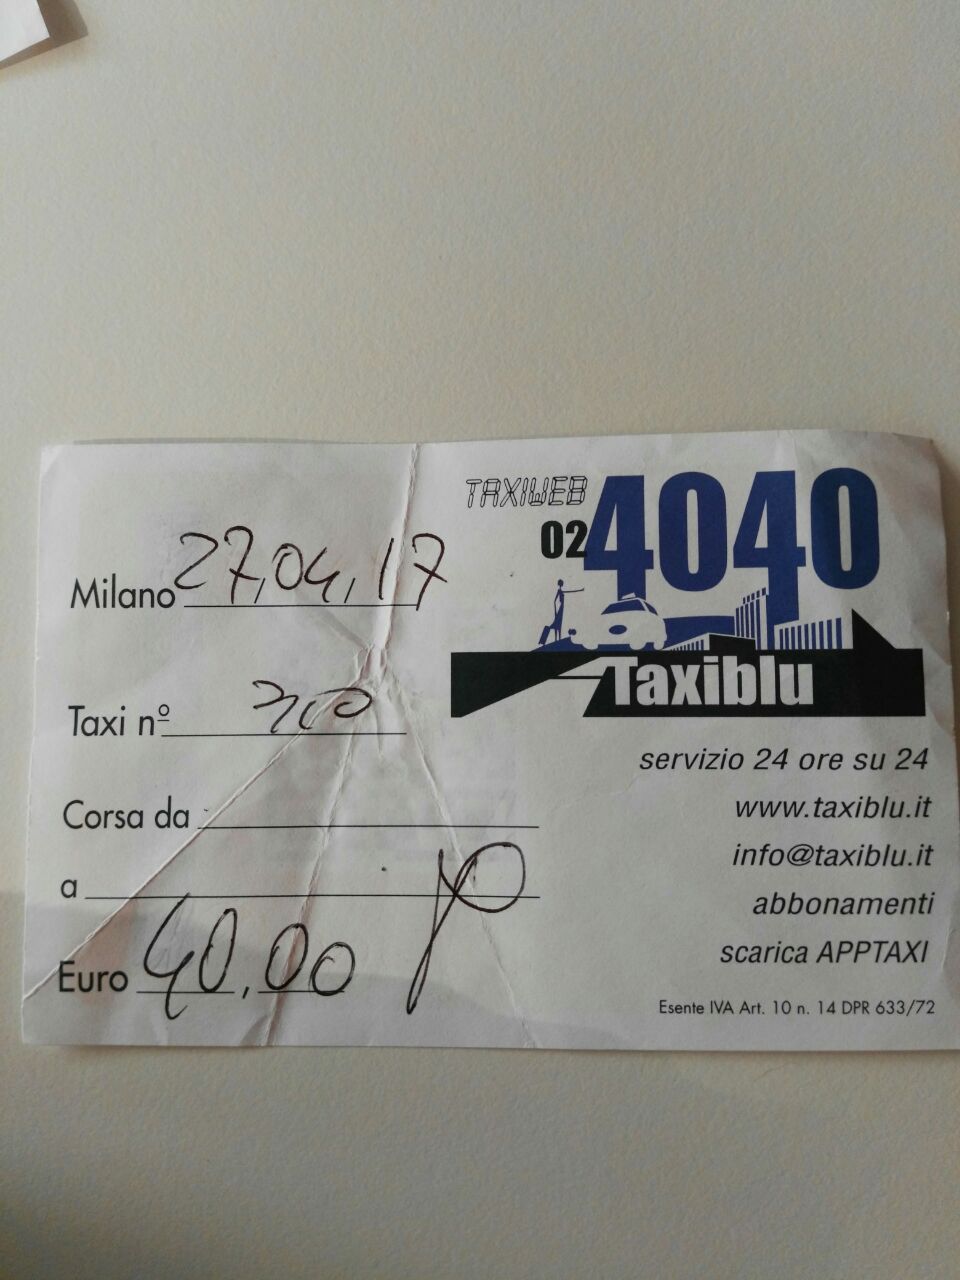 Milano 27,04,17
Taxi nº
Corsa da
a
Euro 40,00
TAXIWEB
02 4040
Taxiblu
servizio 24 ore su 24
www.taxiblu.it
info@taxiblu.it
abbonamenti
scarica APPTAXI
Esente IVA Art. 10 n. 14 DPR 633/72